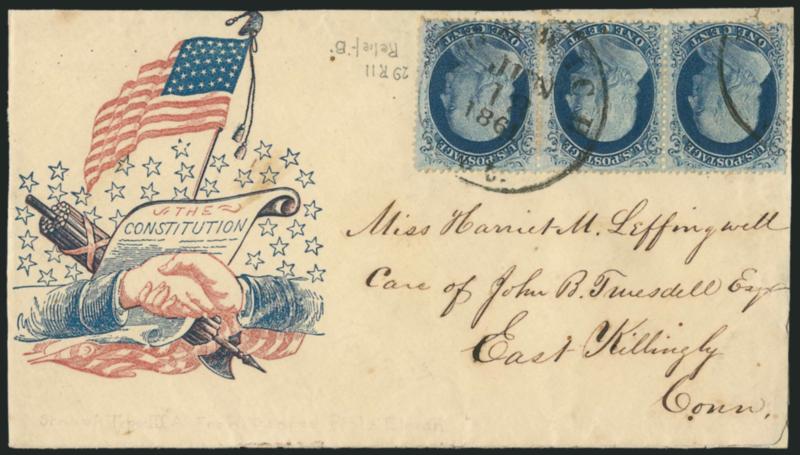 29 R 11
Relief-B.
U.S. POSTAGE
ONE CENT
U.S. POSTAGE
ONE CENT
U.S. POSTAGE
ONE CENT
JUN
186
THE
CONSTITUTION
Miss Harriet M. Leffingwell
Care of John B. Truesdell Esqr
East Killingly
Conn.